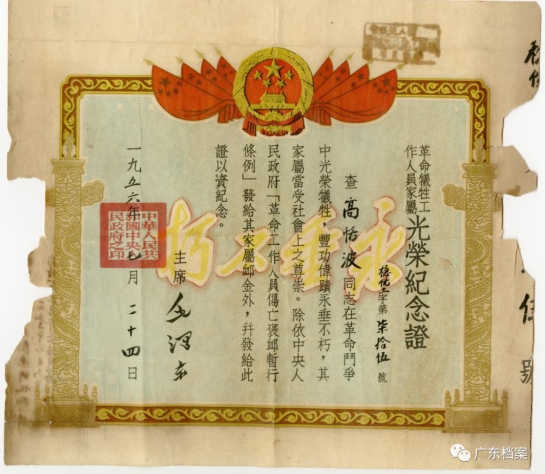 革命犧牲工
作人員家屬
光榮紀念證
字第柒拾伍號
查高恬波同志在革命鬥爭
中光榮犧牲，豐功偉蹟永垂不朽，其
家屬當受社會上之尊崇。除依中央人
民政府「革命工作人員傷亡褒卹暫行
條例」發給其家屬卹金外，幷發給此
證以資紀念。
主席 毛澤東
一九五六年
月二十四日
中華人民共
和國中央人
民政府之印
永垂不朽
號
广东档案